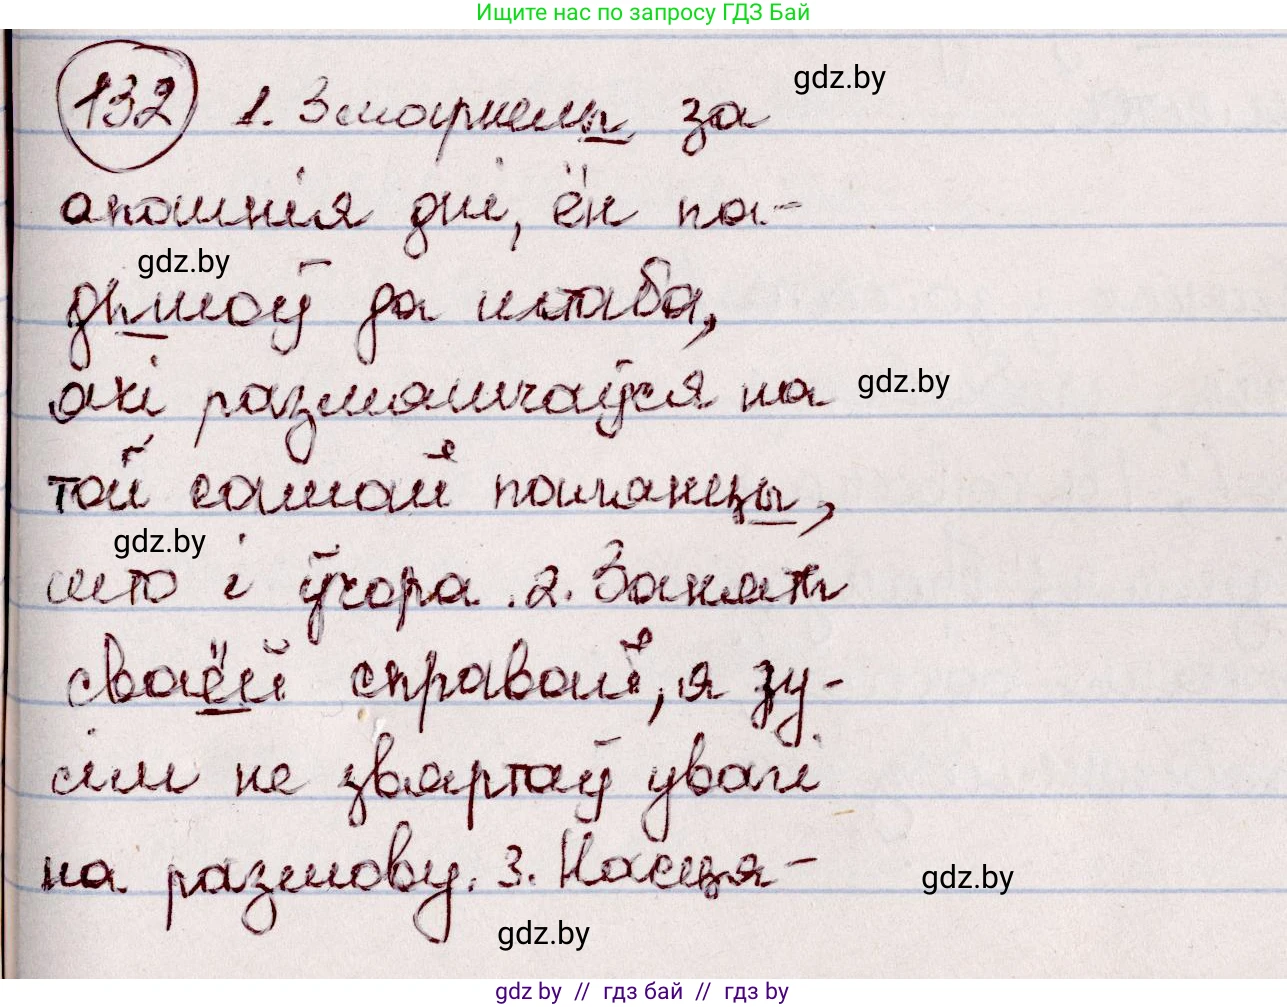 Ищите нас по запросу ГДЗ Бай
132 1. Змарнелы за
gdz.by
апошнія дні, ён па-
gdz.by
дышоў да штаба,
які размяшчаўся на
gdz.by
той самай палянцы,
gdz.by
што і ўчора. 2. Заняты
сваёй справай, я зу-
сім не звяртаў увагі
на размову. 3. Насця-
gdz.by
gdz.by
gdz by // гдз бай // гдз by